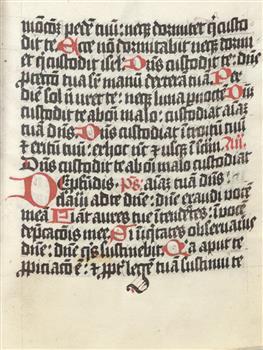 motōem pedem tuū: neqꝫ dormitet q̇ custo
dit te Ecce nō dormitabit neqꝫ dormi
et q̇ custodit isrl: Dn̄s custodit te: dn̄s
ꝓtectio tua sup̱ manū dexterā tuā Per
diem sol nō uret te: neqꝫ luna p̱ noctē Dn̄s
custodit te ab oī malo: custodiat aīaꝫ
tuā dn̄s: Dn̄s custodiat ītroitū tuū
et exitū tuū: ex hoc nt̄ et usqꝫ ī sc̄lm. An̄.
Dn̄s custodit te ab oī malo custodiat
De ꝓfundis. ps. aīaꝫ tuā dn̄s:
clamaui ad te dn̄e: dn̄e exaudi vocē
meā Fiāt aures tue intēdētes: ī vocē
dep̄catōis mee Si iniq̇tates obseruauis
dn̄e: dn̄e q̇s sustinebit: Qa aput te
ꝓpiciacō ē: et ꝓpt̄ legē tuā sustinui te